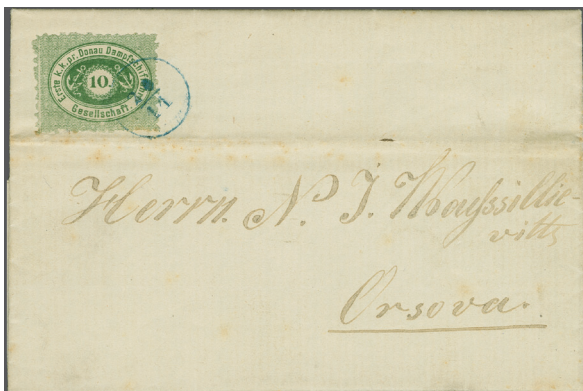 Erste k. k. pr. Donau Dampfschiffahrt
10.
Gesellschaft.
Herrn. N. J. Wayssillie-
vitts
Orsova.